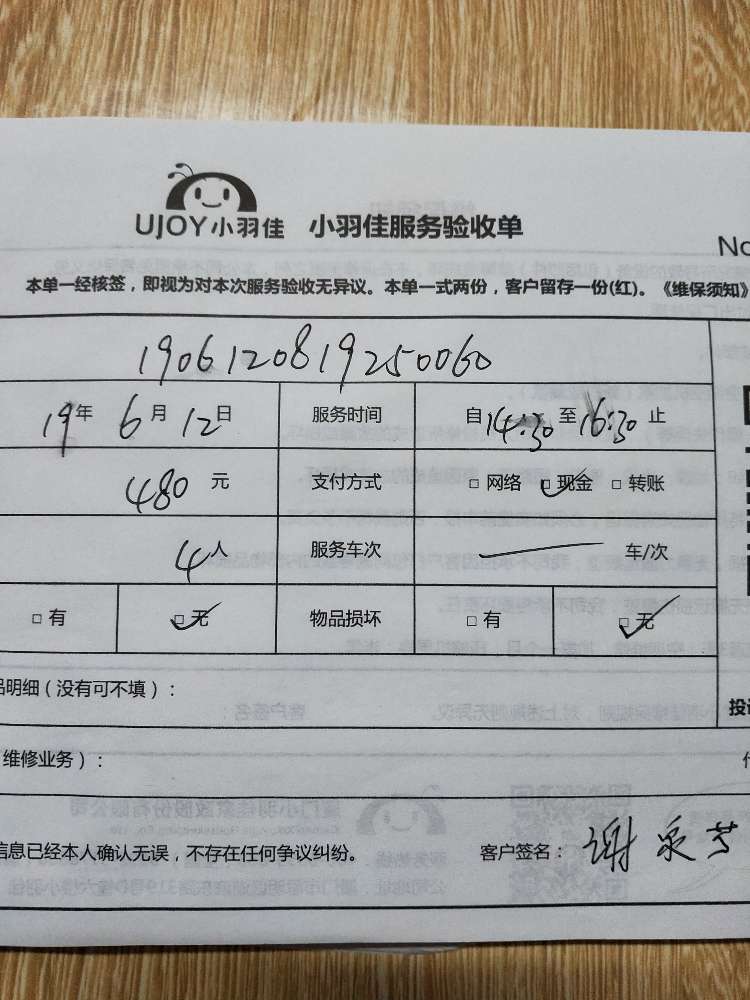 UJOY小羽佳 小羽佳服务验收单
No
本单一经核签，即视为对本次服务验收无异议。本单一式两份，客户留存一份(红)。《维保须知》
1906120819250060
19年 6月 12日 服务时间 自14:30至16:30止
480元 支付方式 □网络 ☑现金 □转账
4人 服务车次 — 车/次
□有 ☑无 物品损坏 □有 ☑无
品明细（没有可不填）：
投诉
维修业务）：
信息已经本人确认无误，不存在任何争议纠纷。 客户签名：谢